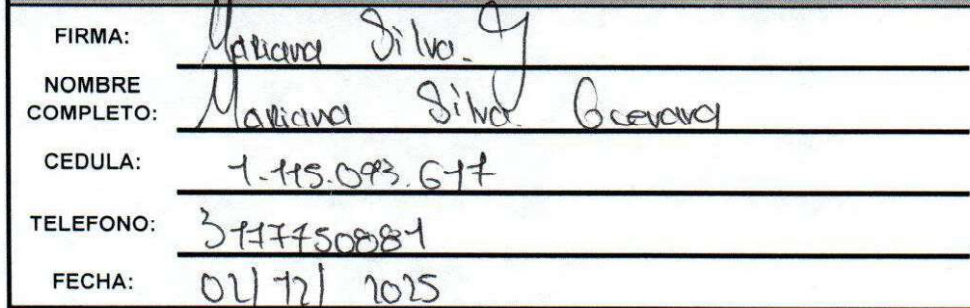 FIRMA: Mariana Silva. G
NOMBRE COMPLETO: Mariana Silva Guevara
CEDULA: 1.115.093.617
TELEFONO:
FECHA: 02/12/2025